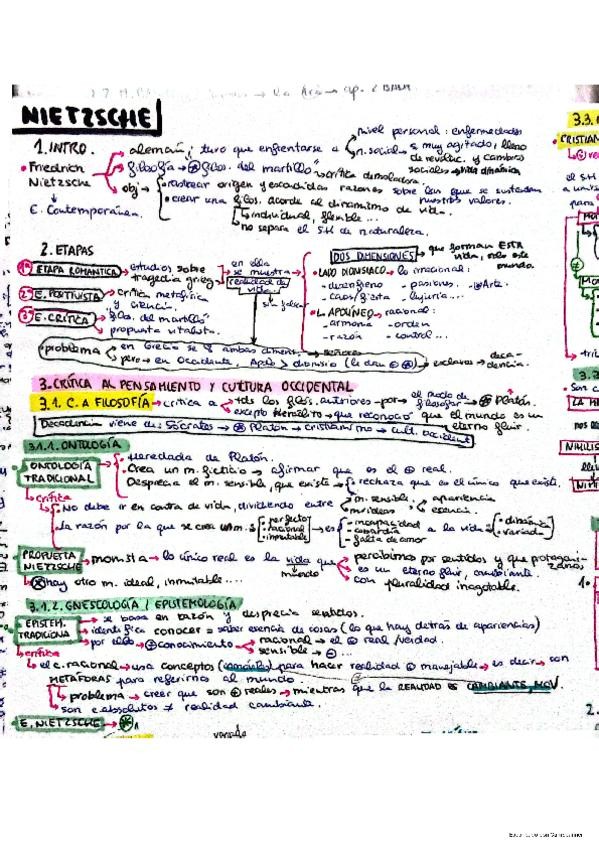 NIETZSCHE
3.3.
1. INTRO.
alemán; tuvo que enfrentarse a
nivel personal: enfermedades
CRISTIAN
n. social → muy agitado, lleno
de revoluc. y cambios
sociales
Friedrich
Nietzsche
filosofía → filos. del martillo"
crítica demoledora
obj → rastrear origen y escondidas razones sobre las que se sustentan
nuestros valores.
crear una filos. acorde al dinamismo de vida.
E. Contemporánea.
individual, flexible...
no separa el S.H de naturaleza.
2. ETAPAS
1ª ETAPA ROMÁNTICA → estudios sobre
tragedia grieg
en ella
se muestra
realidad de
vida
DOS DIMENSIONES → que forman ESTA
vida, solo este
mundo.
LADO DIONISIACO → lo irracional:
- desenfreno - pasiones. - Arte.
- caos/fiesta - lujuria...
2ª E. POSITIVISTA → crítica metafísica
y ciencia.
sin falsear
L. APOLÍNEO → racional:
- armonía - orden
- razón - control...
3ª E. CRÍTICA → "filos. del martillo"
propuesta vitalista.
problema
en Grecia se ambas diment. → señores
pero → en Occidente, Apolo > dionisio → esclavos → deca-
dencia.
3. CRÍTICA AL PENSAMIENTO Y CULTURA OCCIDENTAL
3.1. C. A FILOSOFÍA → crítica a
tds los filós. anteriores → por → el modo de
filosofar → Platón.
excepto Heráclito → que reconoció que el mundo es un
eterno fluir.
Decadencia viene de: Sócrates → Platón → cristianismo → cult. occident
3.1.1. ONTOLOGÍA
ONTOLOGÍA
TRADICIONAL
Heredada de Platón.
Crea un m. ficticio → afirmar que es el real.
Desprecia el m. sensible, que existe → rechaza que es el único que existe.
crítica
No debe ir en contra de vida, dividiendo entre
m. sensible → apariencia
m. ideas → esencia.
La razón por la que se crea un m.
perfecto
racional
inmutable
es
- incapacidad
- cobardía
- falta de amor
a la vida
- dinámica
- variada
PROPUESTA
NIETZSCHE → monista → lo único real es la vida que
mundo
percibimos por sentidos y que protagoni-
zamos
es un eterno fluir, cambiante
con pluralidad inagotable.
hay otro m. ideal, inmutable....
3.1.2. GNESEOLOGÍA / EPISTEMOLOGÍA
EPISTEM.
TRADICIONA
se basa en razón y desprecia sentidos.
identifica conocer = saber esencia de cosas (lo que hay detrás de apariencias)
por ellos → conocimiento
racional → el real/verdad.
sensible → ...
crítica
el c. racional → usa conceptos para hacer realidad manejable → es decir, son
METÁFORAS para referirnos al mundo
problema → creer que son reales → mientras que la REALIDAD ES CAMBIANTE, MOV.
son c. absolutos ≠ realidad cambiante.
E. NIETZSCHE